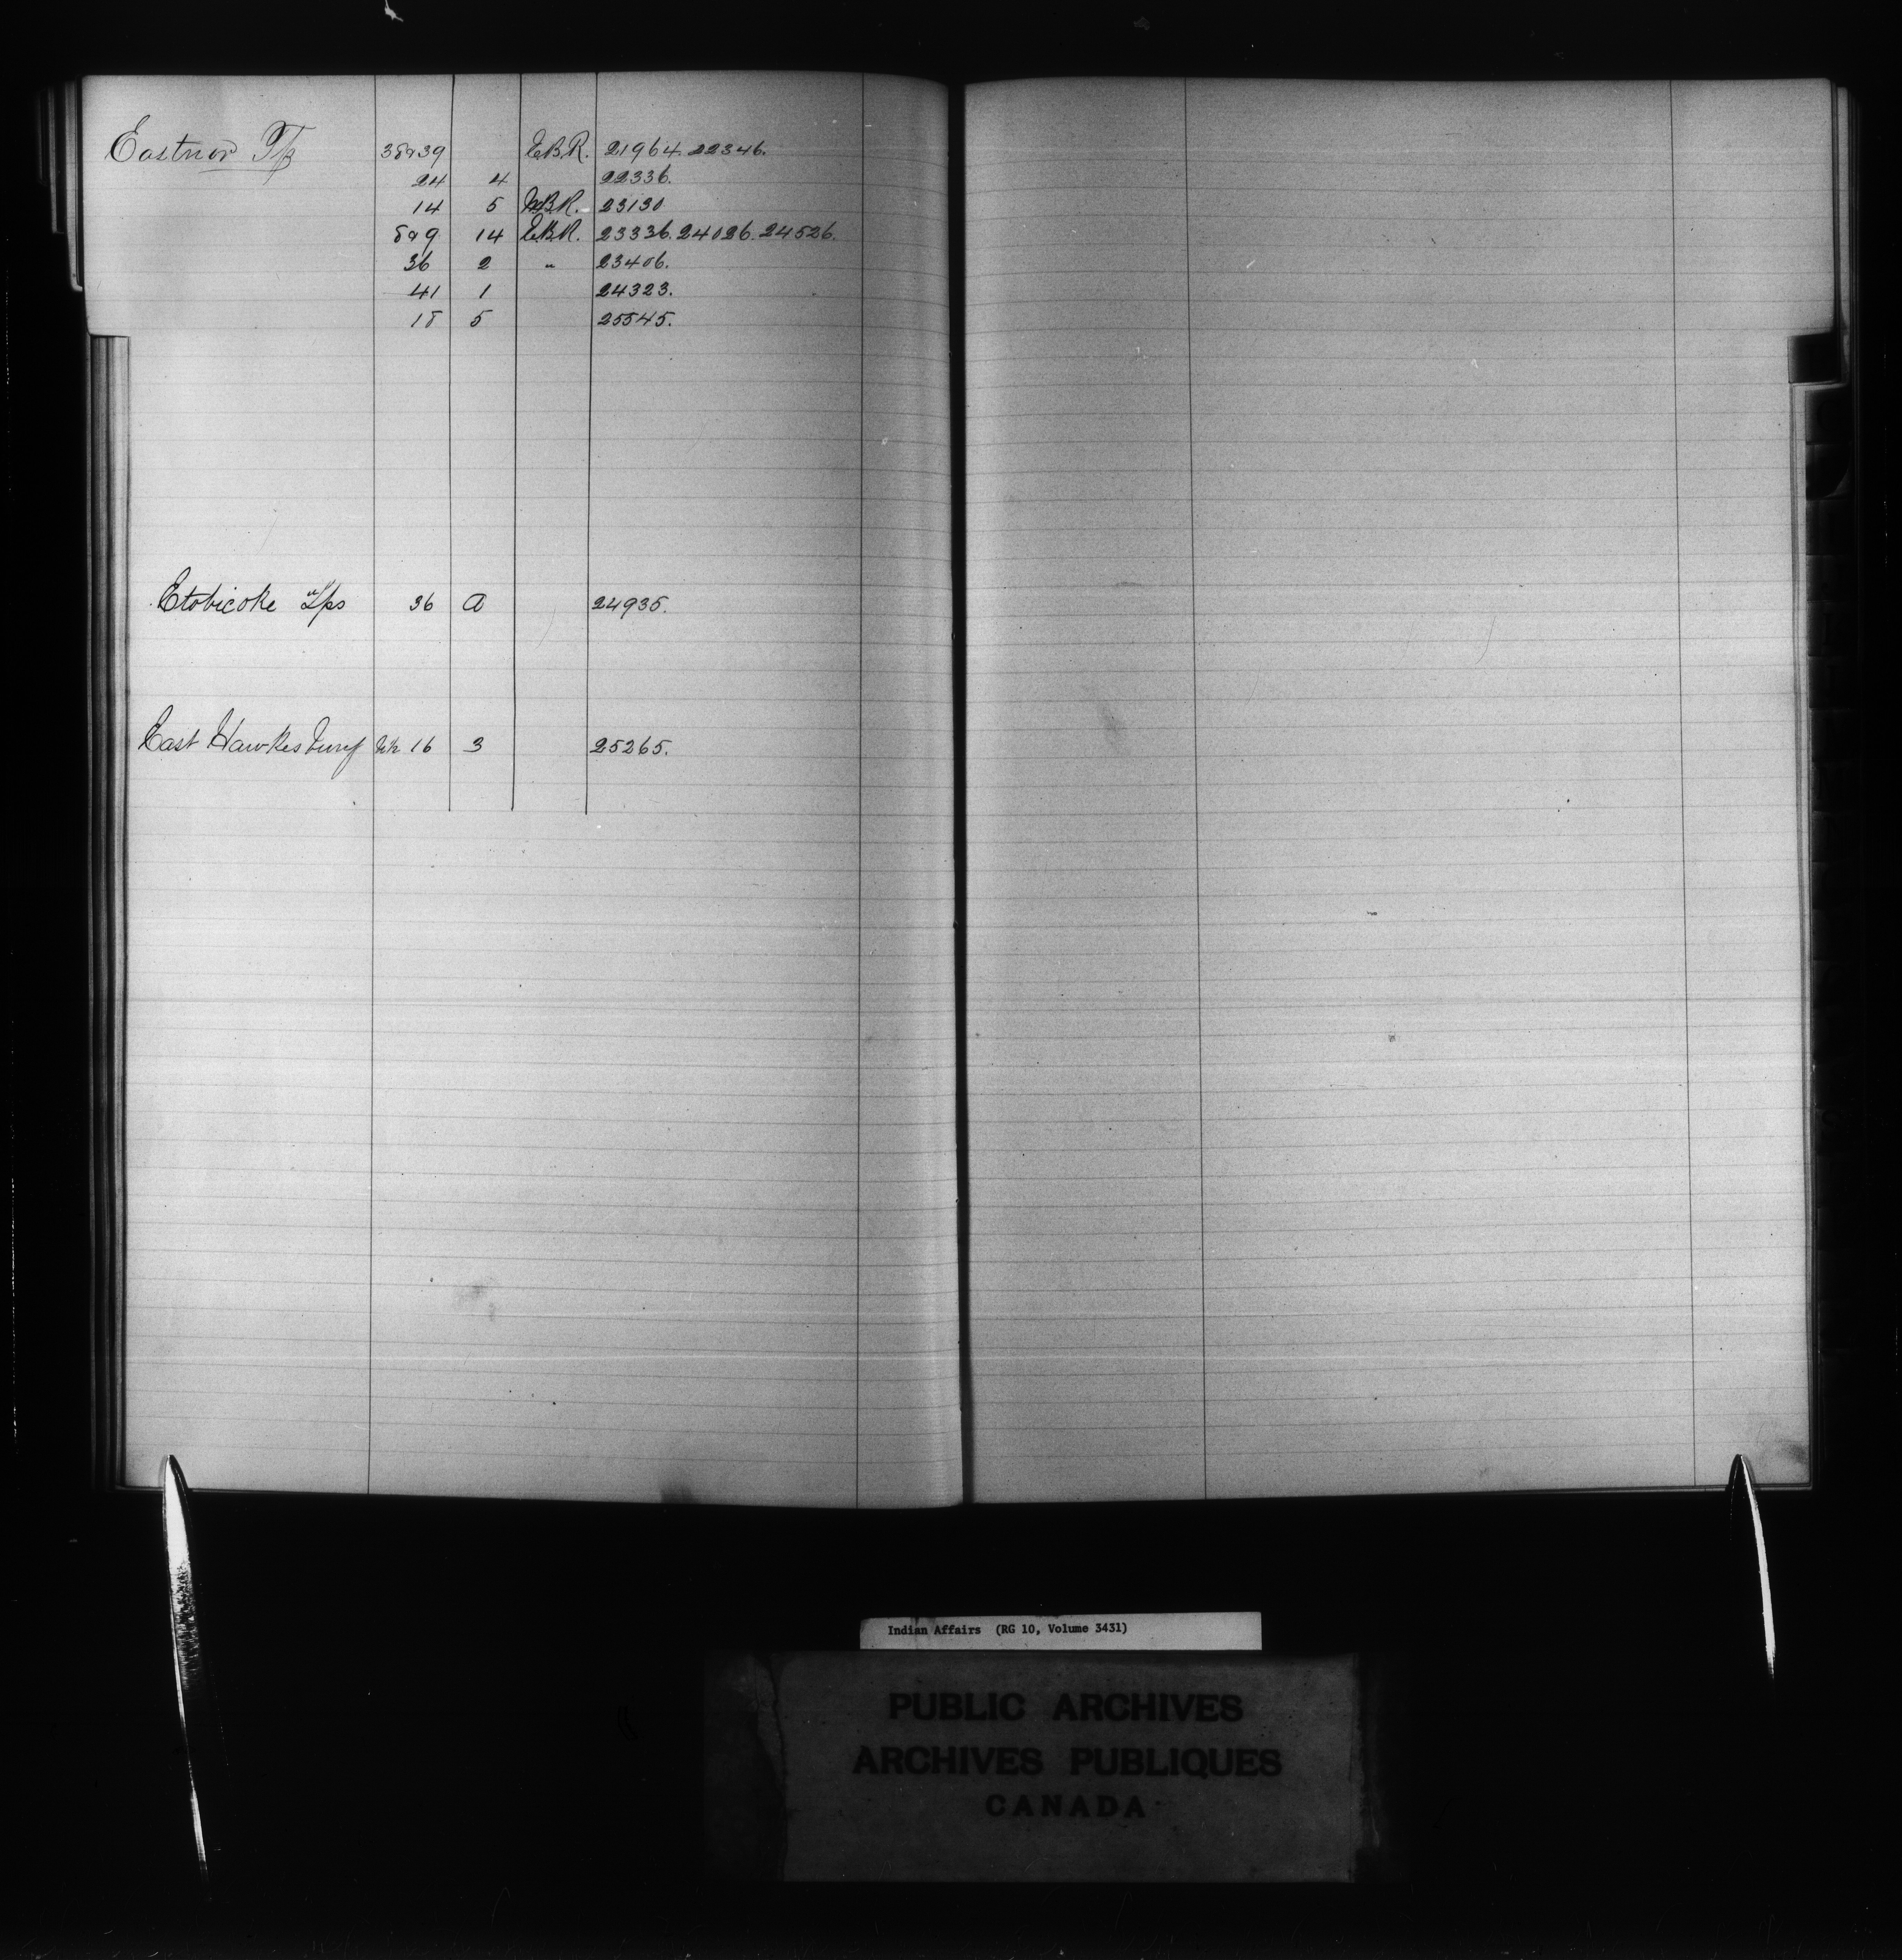 Eastnor Tp 38&39 E.B.R. 21964. 22346.
24 4 22336.
14 5 W.B.R. 23130
8&9 14 E.B.R. 23336. 24026. 24526.
36 2 " 23406.
41 1 24323.
18 5 25545.
Etobicoke Tps 36 A 24935.
East Hawkesbury 16 3 25265.
Indian Affairs (RG 10, Volume 3431)
PUBLIC ARCHIVES
ARCHIVES PUBLIQUES
CANADA